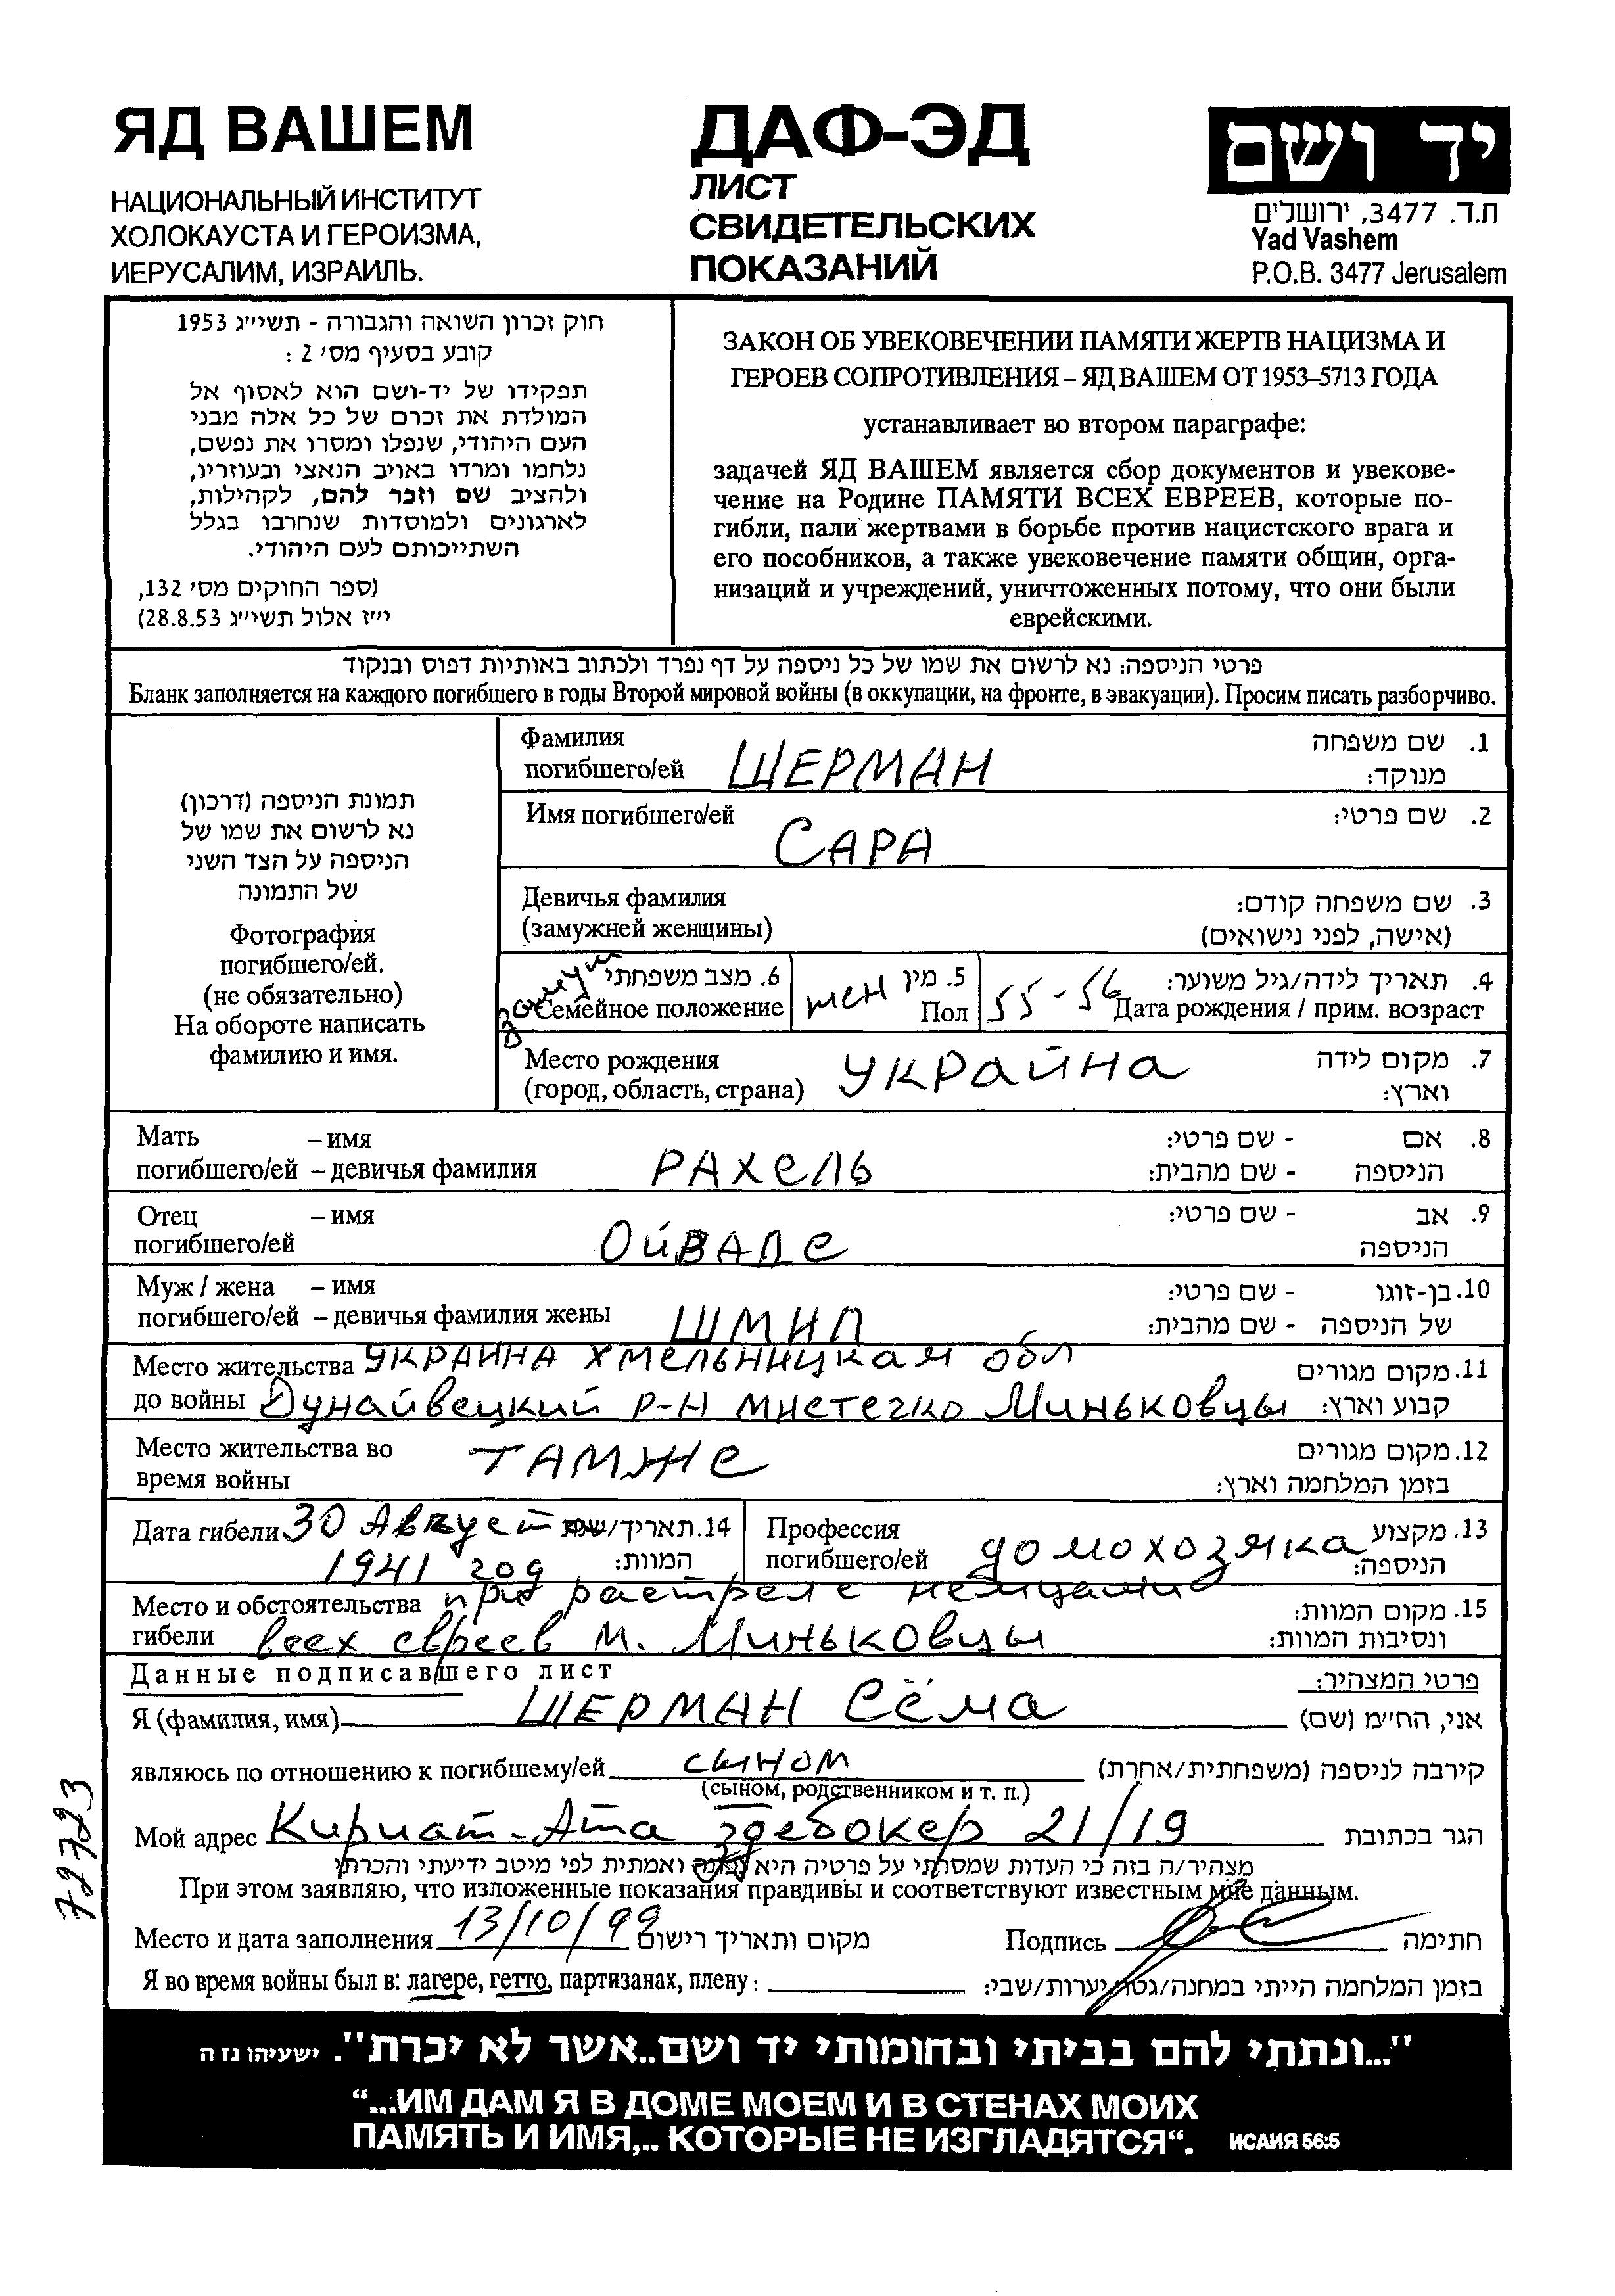 ЯД ВАШЕМ
НАЦИОНАЛЬНЫЙ ИНСТИТУТ
ХОЛОКАУСТА И ГЕРОИЗМА,
ИЕРУСАЛИМ, ИЗРАИЛЬ.
ДАФ-ЭД
ЛИСТ
СВИДЕТЕЛЬСКИХ
ПОКАЗАНИЙ
יד ושם
ת.ד. 3477, ירושלים
Yad Vashem
P.O.B. 3477 Jerusalem
חוק זכרון השואה והגבורה - תשי״ג 1953
קובע בסעיף מס׳ 2 :
תפקידו של יד-ושם הוא לאסוף אל
המולדת את זכרם של כל אלה מבני
העם היהודי, שנפלו ומסרו את נפשם,
נלחמו ומרדו באויב הנאצי ובעוזריו,
ולהציב שם וזכר להם, לקהילות,
לארגונים ולמוסדות שנחרבו בגלל
השתייכותם לעם היהודי.
(ספר החוקים מס׳ 132,
י״ז אלול תשי״ג 28.8.53)
ЗАКОН ОБ УВЕКОВЕЧЕНИИ ПАМЯТИ ЖЕРТВ НАЦИЗМА И
ГЕРОЕВ СОПРОТИВЛЕНИЯ – ЯД ВАШЕМ ОТ 1953–5713 ГОДА
устанавливает во втором параграфе:
задачей ЯД ВАШЕМ является сбор документов и увекове-
чение на Родине ПАМЯТИ ВСЕХ ЕВРЕЕВ, которые по-
гибли, пали жертвами в борьбе против нацистского врага и
его пособников, а также увековечение памяти общин, орга-
низаций и учреждений, уничтоженных потому, что они были
еврейскими.
פרטי הניספה: נא לרשום את שמו של כל ניספה על דף נפרד ולכתוב באותיות דפוס ובנקוד
Бланк заполняется на каждого погибшего в годы Второй мировой войны (в оккупации, на фронте, в эвакуации). Просим писать разборчиво.
תמונת הניספה (דרכון)
נא לרשום את שמו של
הניספה על הצד השני
של התמונה
Фотография
погибшего/ей.
(не обязательно)
На обороте написать
фамилию и имя.
Фамилия 1. שם משפחה
погибшего/ей ШЕРМАН מנוקד:
Имя погибшего/ей 2. שם פרטי:
САРА
Девичья фамилия 3. שם משפחה קודם:
(замужней женщины) (אישה, לפני נישואים)
замуж 6. מצב משפחתי 5. מין 4. תאריך לידה/גיל משוער:
Семейное положение жен Пол 55-56 Дата рождения / прим. возраст
Место рождения 7. מקום לידה
(город, область, страна) УКРАЙНА וארץ:
Мать – имя 8. אם - שם פרטי:
погибшего/ей – девичья фамилия РАХЕЛЬ הניספה - שם מהבית:
Отец – имя 9. אב - שם פרטי:
погибшего/ей ОЙВАДЕ הניספה
Муж / жена – имя 10. בן-זוגו - שם פרטי:
погибшего/ей – девичья фамилия жены ШМИЛ של הניספה - שם מהבית:
Место жительства УКРАИНА ХМЕЛЬНИЦКАЯ обл 11. מקום מגורים
до войны Дунайвецкий р-н мистечко Миньковцы קבוע וארץ:
Место жительства во 12. מקום מגורים
время войны ТАМЖЕ בזמן המלחמה וארץ:
Дата гибели 30 Август 14. תאריך/שנת Профессия 13. מקצוע
1941 год המוות: погибшего/ей домохозяка הניספה:
Место и обстоятельства при растреле немцами 15. מקום המוות:
гибели всех евреев м. Миньковцы ונסיבות המוות:
Данные подписавшего лист פרטי המצהיר:
Я (фамилия, имя) ШЕРМАН Сёма אני, הח״מ (שם)
являюсь по отношению к погибшему/ей сыном קירבה לניספה (משפחתית/אחרת)
(сыном, родственником и т. п.)
Мой адрес Кириат-Ата здебокер 21/19 הגר בכתובת
מצהיר/ה בזה כי העדות שמסרתי על פרטיה היא נכונה ואמתית לפי מיטב ידיעתי והכרתי
При этом заявляю, что изложенные показания правдивы и соответствуют известным мне данным.
Место и дата заполнения 13/10/99 מקום ותאריך רישום Подпись חתימה
Я во время войны был в: лагере, гетто, партизанах, плену: בזמן המלחמה הייתי במחנה/גטו/יערות/שבי:
72723
"...ונתתי להם בביתי ובחומותי יד ושם..אשר לא יכרת". ישעיהו נז ה
“...ИМ ДАМ Я В ДОМЕ МОЕМ И В СТЕНАХ МОИХ
ПАМЯТЬ И ИМЯ,.. КОТОРЫЕ НЕ ИЗГЛАДЯТСЯ“. ИСАИЯ 56:5